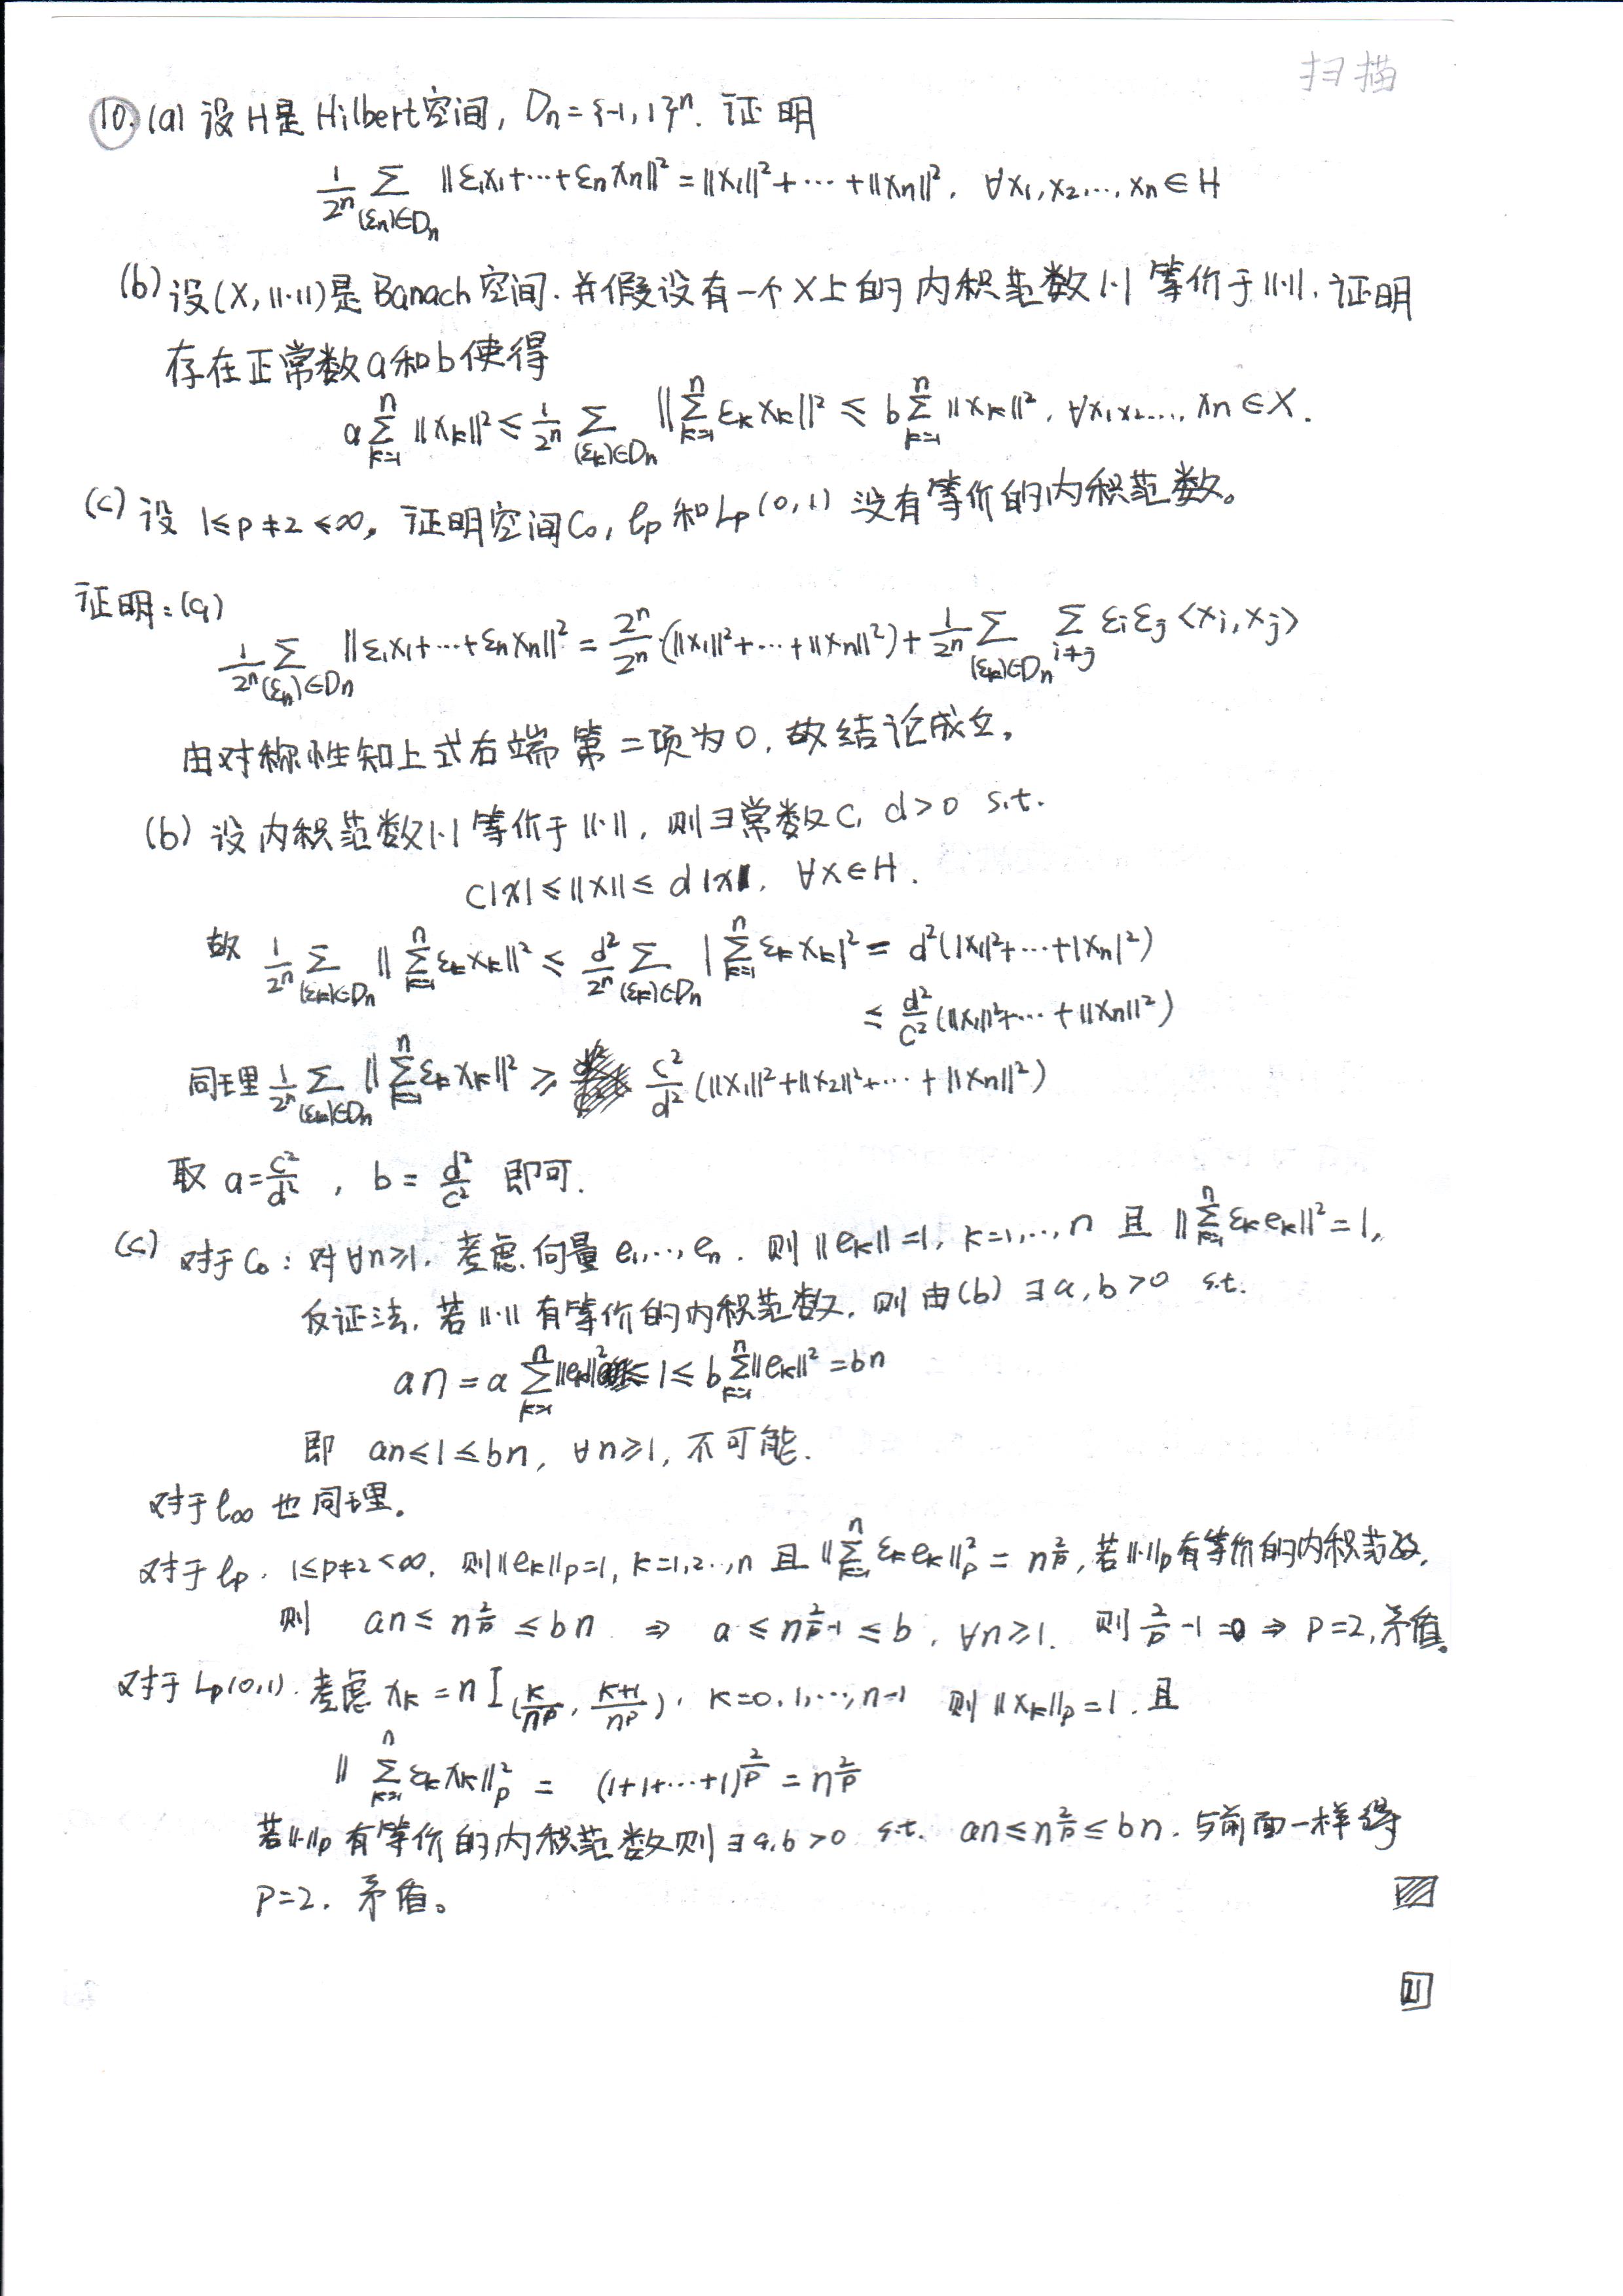 扫描
10. (a) 设H是Hilbert空间, Dn={-1,1}ⁿ. 证明
1/2ⁿ ∑_{(εn)∈Dn} ‖ε₁x₁+⋯+εnxn‖² = ‖x₁‖²+⋯+‖xn‖², ∀x₁,x₂…,xn∈H
(b) 设(X,‖·‖)是Banach空间. 并假设有一个X上的内积范数|·|等价于‖·‖. 证明
存在正常数a和b使得
a∑_{k=1}^{n}‖xk‖² ≤ 1/2ⁿ ∑_{(εk)∈Dn} ‖∑_{k=1}^{n}εkxk‖² ≤ b∑_{k=1}^{n}‖xk‖², ∀x₁x₂…,xn∈X.
(c) 设 1≤p≠2≤∞, 证明空间C₀, ℓp和Lp(0,1)没有等价的内积范数。
证明:(a)
1/2ⁿ ∑_{(εn)∈Dn} ‖ε₁x₁+⋯+εnxn‖² = 2ⁿ/2ⁿ·(‖x₁‖²+⋯+‖xn‖²) + 1/2ⁿ ∑_{(εk)∈Dn} ∑_{i≠j} εiεj<xi,xj>
由对称性知上式右端第二项为0, 故结论成立。
(b) 设内积范数|·|等价于‖·‖, 则∃常数c, d>0 s.t.
c|x|≤‖x‖≤d|x|, ∀x∈H.
故 1/2ⁿ ∑_{(εk)∈Dn} ‖∑_{k=1}^{n}εkxk‖² ≤ d²/2ⁿ ∑_{(εk)∈Dn} |∑_{k=1}^{n}εkxk|² = d²(|x₁|²+⋯+|xn|²)
≤ d²/c²(‖x₁‖²+⋯+‖xn‖²)
同理 1/2ⁿ ∑_{(εk)∈Dn} ‖∑_{k=1}^{n}εkxk‖² ≥ c²/d²(‖x₁‖²+‖x₂‖²+⋯+‖xn‖²)
取 a=c²/d², b=d²/c² 即可.
(c) 对于C₀: 对∀n≥1, 考虑向量e₁,…,en. 则‖ek‖=1, k=1,…,n 且 ‖∑_{k=1}^{n}εkek‖²=1,
反证法, 若‖·‖有等价的内积范数, 则由(b) ∃a,b>0 s.t.
an = a∑_{k=1}^{n}‖ek‖² ≤ 1 ≤ b∑_{k=1}^{n}‖ek‖² = bn
即 an≤1≤bn, ∀n≥1, 不可能.
对于ℓ∞也同理。
对于ℓp. 1≤p≠2<∞, 则‖ek‖p=1, k=1,2…,n 且 ‖∑_{k=1}^{n}εkek‖p² = n^{2/p}, 若‖·‖p有等价的内积范数,
则 an≤n^{2/p}≤bn ⇒ a≤n^{2/p-1}≤b, ∀n≥1. 则 2/p-1=0 ⇒ p=2, 矛盾。
对于Lp(0,1). 考虑 xk = n I_{(k/n^p, (k+1)/n^p)}, k=0,1,…,n-1 则‖xk‖p=1. 且
‖∑_{k=1}^{n}εkxk‖p² = (1+1+⋯+1)^{2/p} = n^{2/p}
若‖·‖p有等价的内积范数则∃a,b>0 s.t. an≤n^{2/p}≤bn. 与前面一样得
p=2, 矛盾。
21